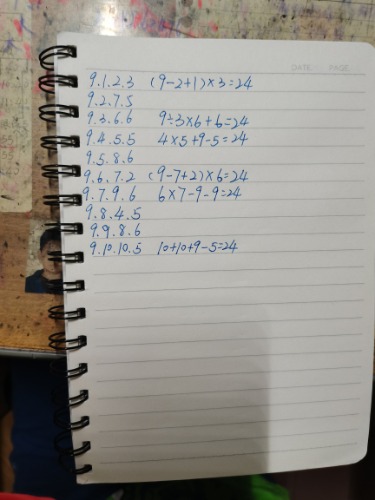 DATE PAGE
9.1.2.3 (9-2+1)×3=24
9.2.7.5
9.3.6.6 9÷3×6+6=24
9.4.5.5 4×5+9-5=24
9.5.8.6
9.6.7.2 (9-7+2)×6=24
9.7.9.6 6×7-9-9=24
9.8.4.5
9.9.8.6
9.10.10.5 10+10+9-5=24